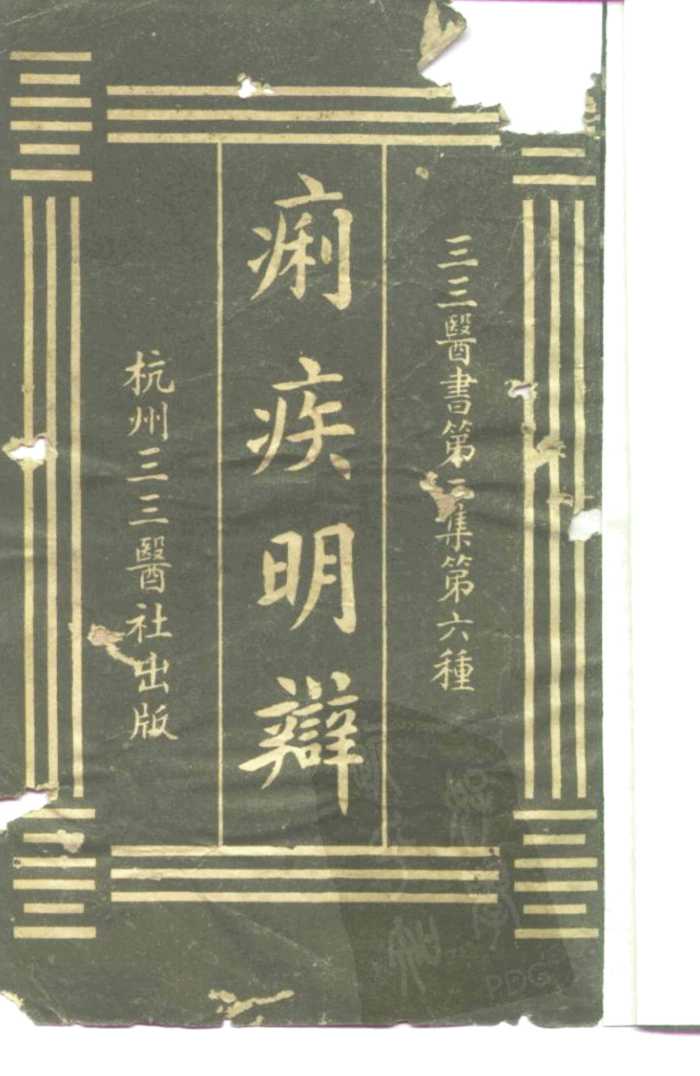 三三醫書第二集第六種
痢疾明辯
杭州三三醫社出版
PDG